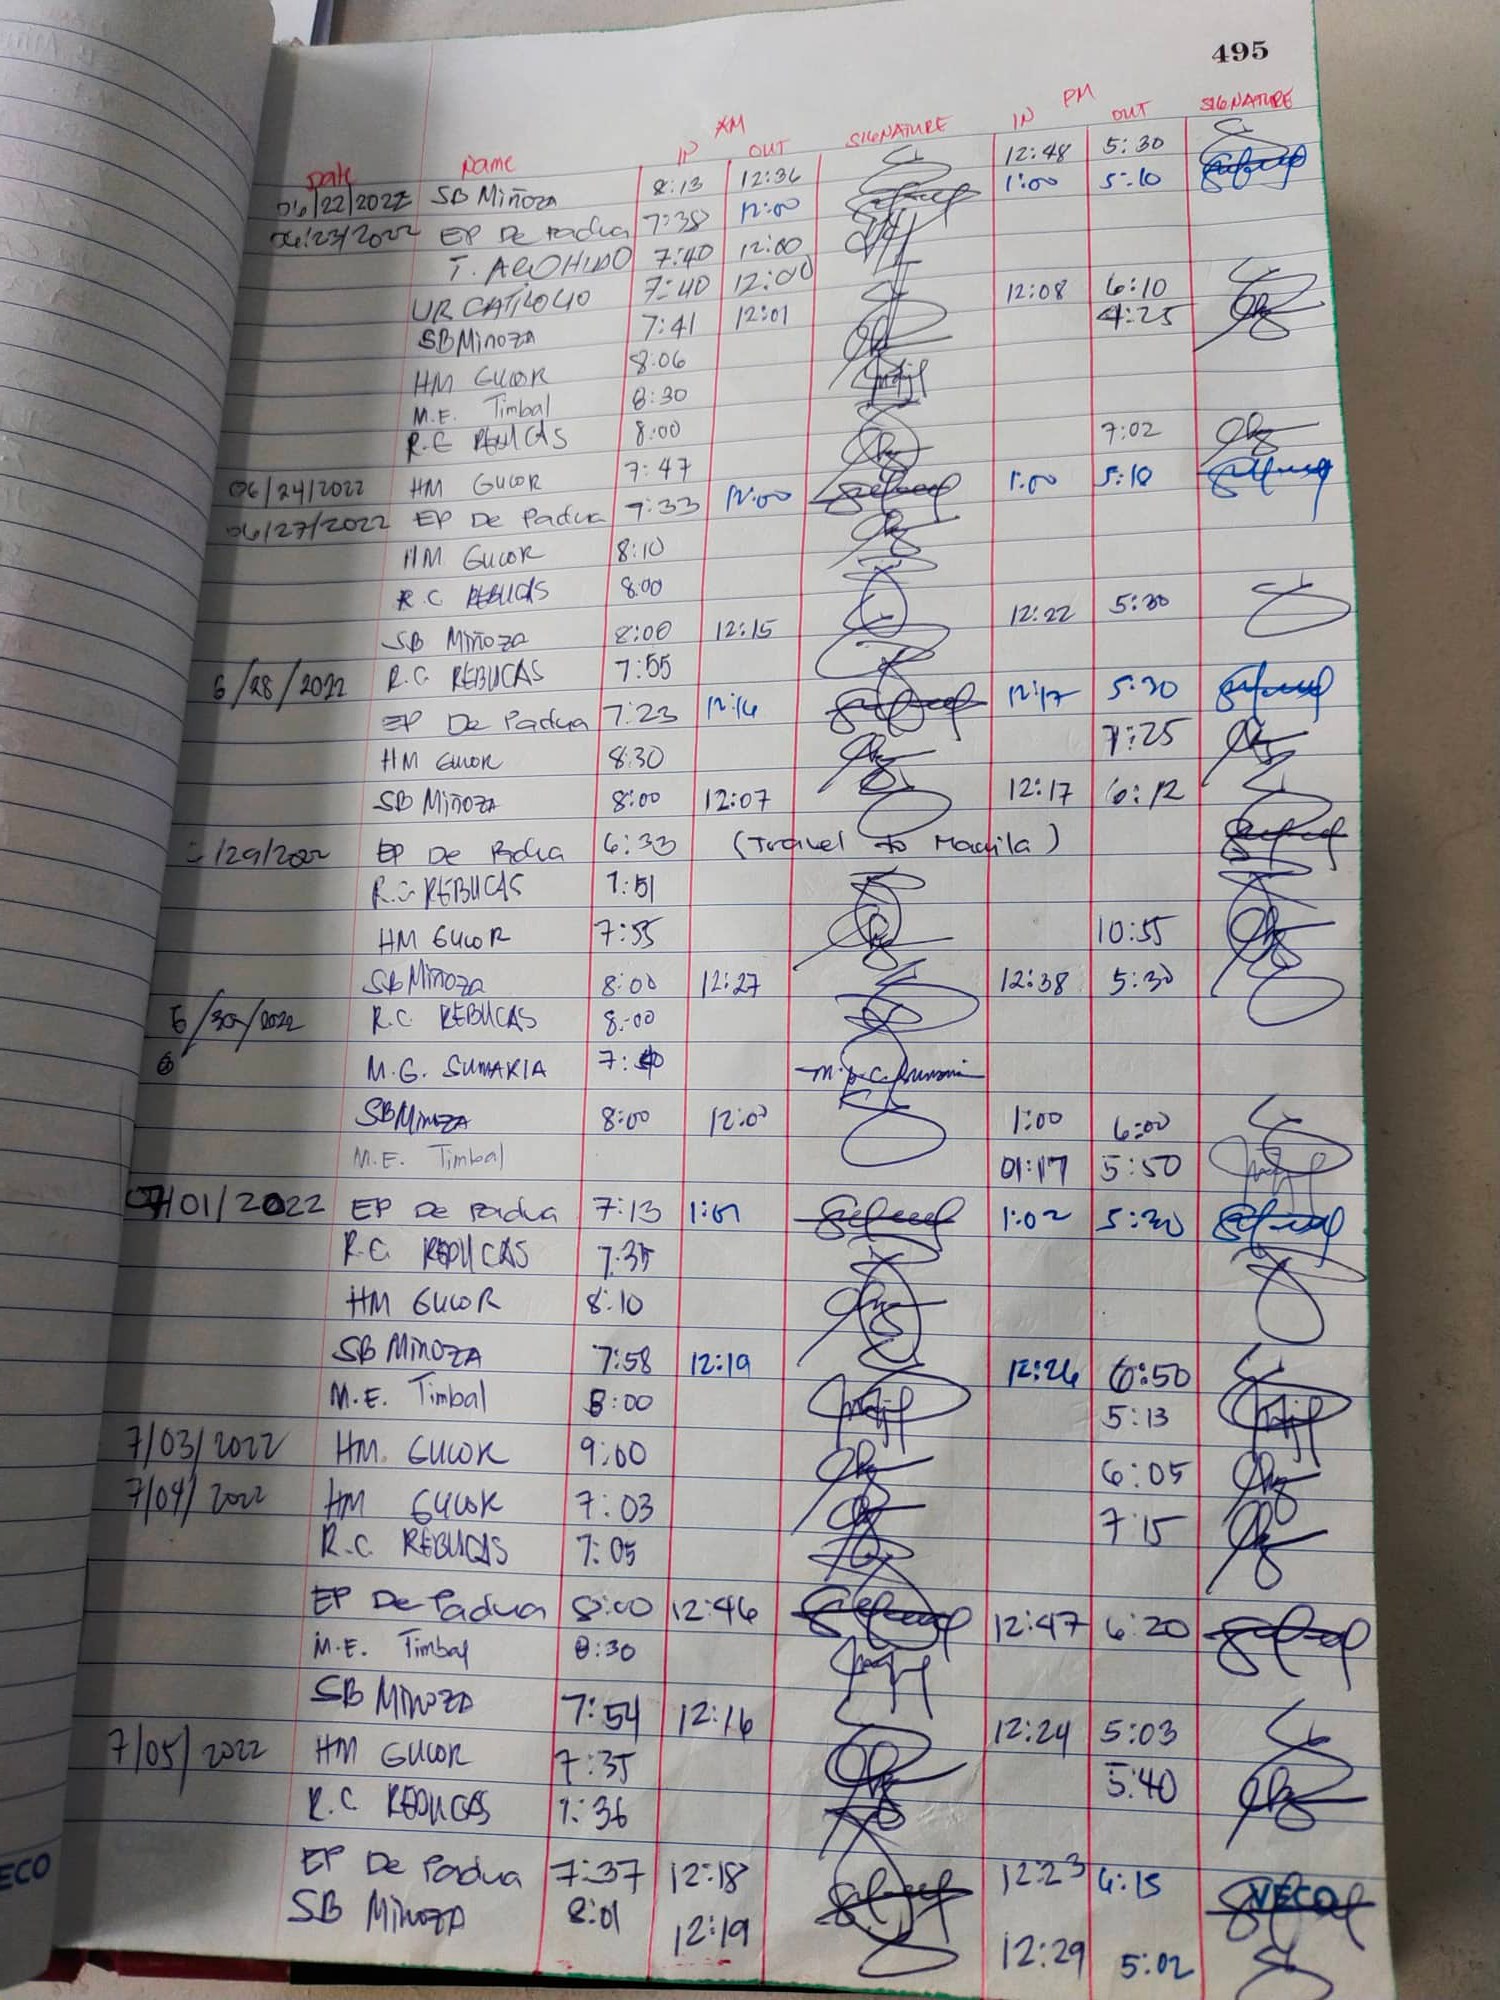 495
AM PM
Date Name IN OUT SIGNATURE IN OUT SIGNATURE
06/22/2022 SB Miñoza 8:13 12:36 12:48 5:30
06/23/2022 EP De Padua 7:38 12:00 1:00 5:10
7:40 12:00
7:40 12:00
SB Minoza 7:41 12:01 12:08 6:10
HM GUCOR 8:06 4:25
M.E. Timbal 8:30
R.C REBUCAS 8:00
06/24/2022 HM GUCOR 7:47 7:02
06/27/2022 EP De Padua 7:33 12:00 1:00 5:10
HM GUCOR 8:10
R.C REBUCAS 8:00
SB Miñoza 8:00 12:15 12:22 5:30
6/28/2022 R.C. REBUCAS 7:55
EP De Padua 7:23 12:16 12:17 5:30
HM GUCOR 8:30 7:25
SB Miñoza 8:00 12:07 12:17 6:12
/29/2022 EP De Padua 6:33 (Travel to Manila)
R.C REBUCAS 7:51
HM GUCOR 7:55 10:55
SB Miñoza 8:00 12:27 12:38 5:30
6/30/2022 R.C. REBUCAS 8:00
6 M.G. SUMARIA 7:40
SB Minoza 8:00 12:0 1:00 6:00
M.E. Timbal 01:17 5:50
07/01/2022 EP De Padua 7:13 1:01 1:02 5:30
R.C. REBUCAS 7:35
HM GUCOR 8:10
SB MINOZA 7:58 12:19 12:26 6:50
M.E. Timbal 8:00 5:13
7/03/2022 HM. GUCOR 9:00 6:05
7/04/2022 HM GUCOR 7:03 7:15
R.C. REBUCAS 7:05
EP De Padua 8:00 12:46 12:47 6:20
M.E. Timbal 8:30
SB MINOZA 7:54 12:16 12:24 5:03
7/05/2022 HM GUCOR 7:35 5:40
R.C REBUCAS 7:36
EP De Padua 7:37 12:18 12:23 6:15
VECO
SB MINOZA 8:01 12:19 12:29 5:02
ECO